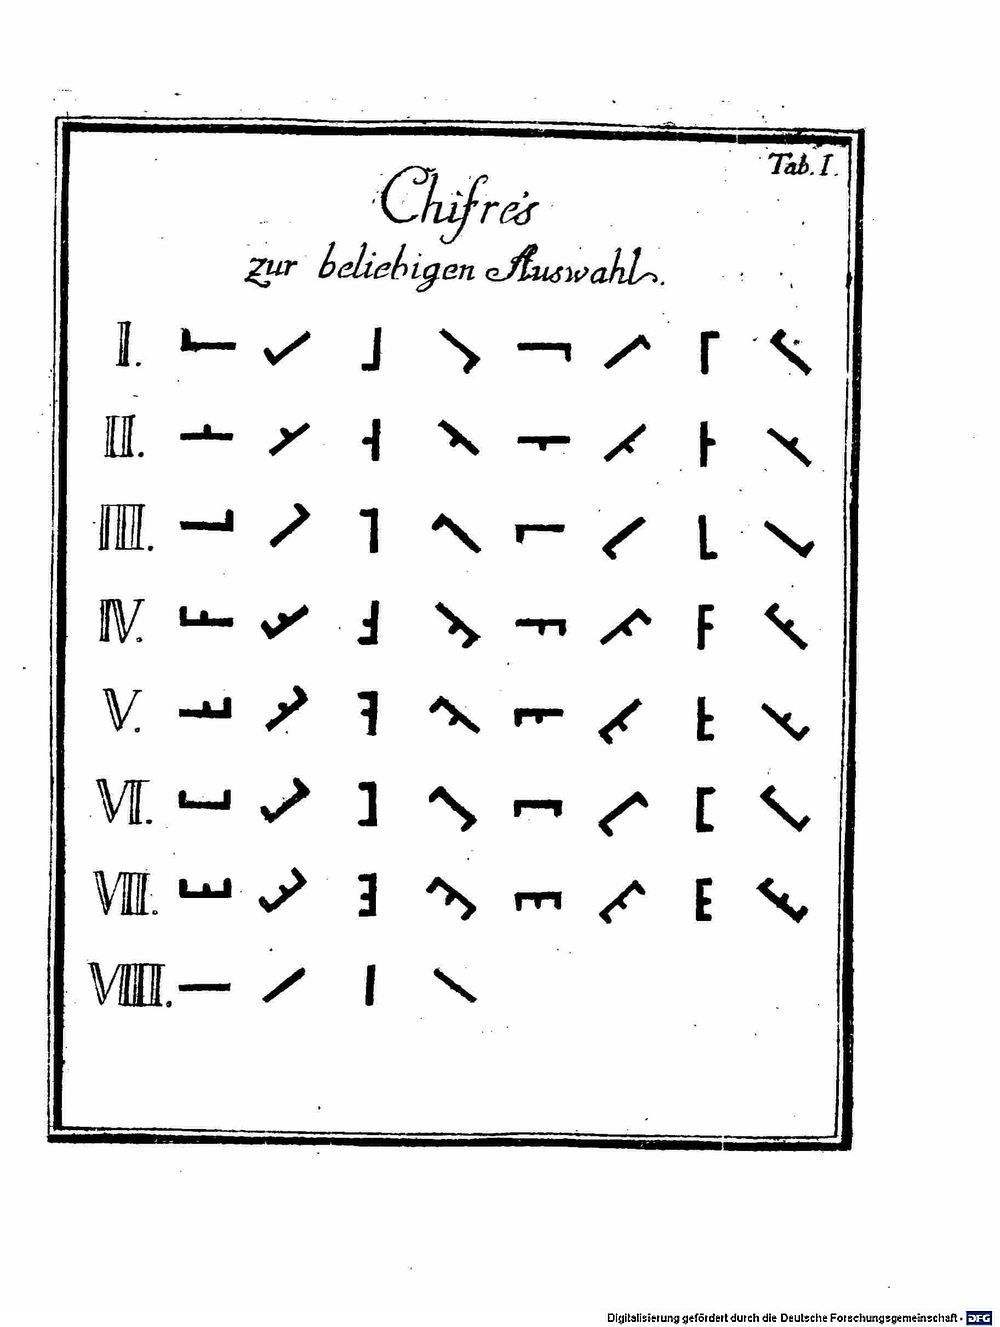 Tab. I.
Chifres
zur beliebigen Auswahl.
I.
II.
III.
IV.
V.
VI.
VII.
VIII.
Digitalisierung gefördert durch die Deutsche Forschungsgemeinschaft - DFG